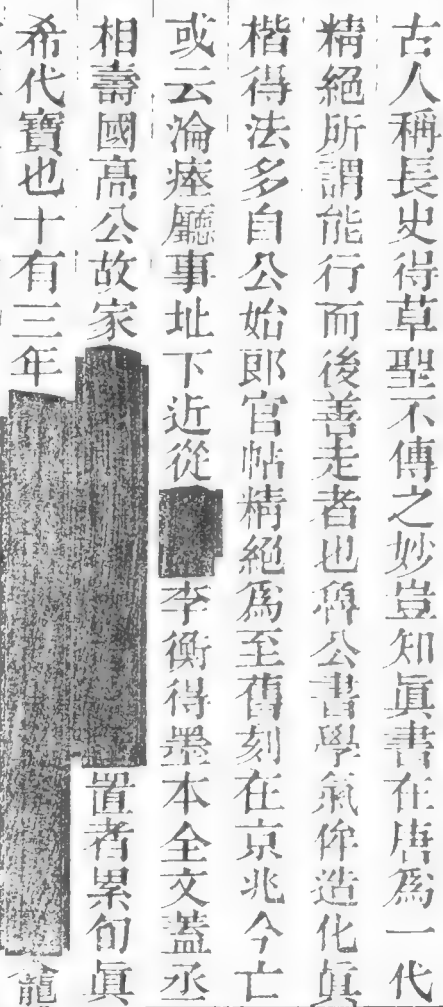 古人稱長史得草聖不傳之妙豈知眞書在唐爲一代
精絕所謂能行而後善走者也魯公書學氣侔造化眞
楷得法多自公始郎官帖精絕爲至舊刻在京兆今亡
或云淪瘞廳事址下近從李衡得墨本全文蓋丞
相壽國高公故家置者累旬眞
希代寶也十有三年龍